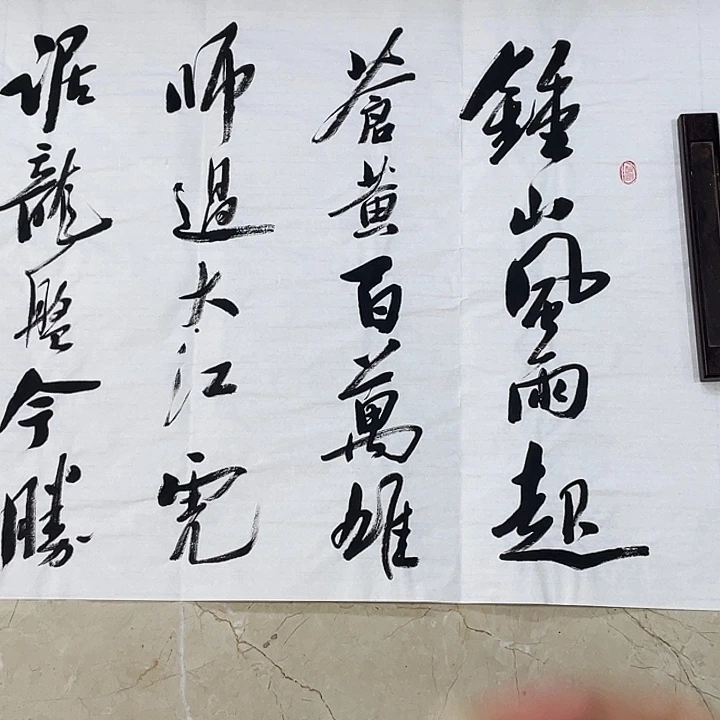 鍾山風雨起
蒼黄百萬雄
師過大江虎
踞龍盤今勝